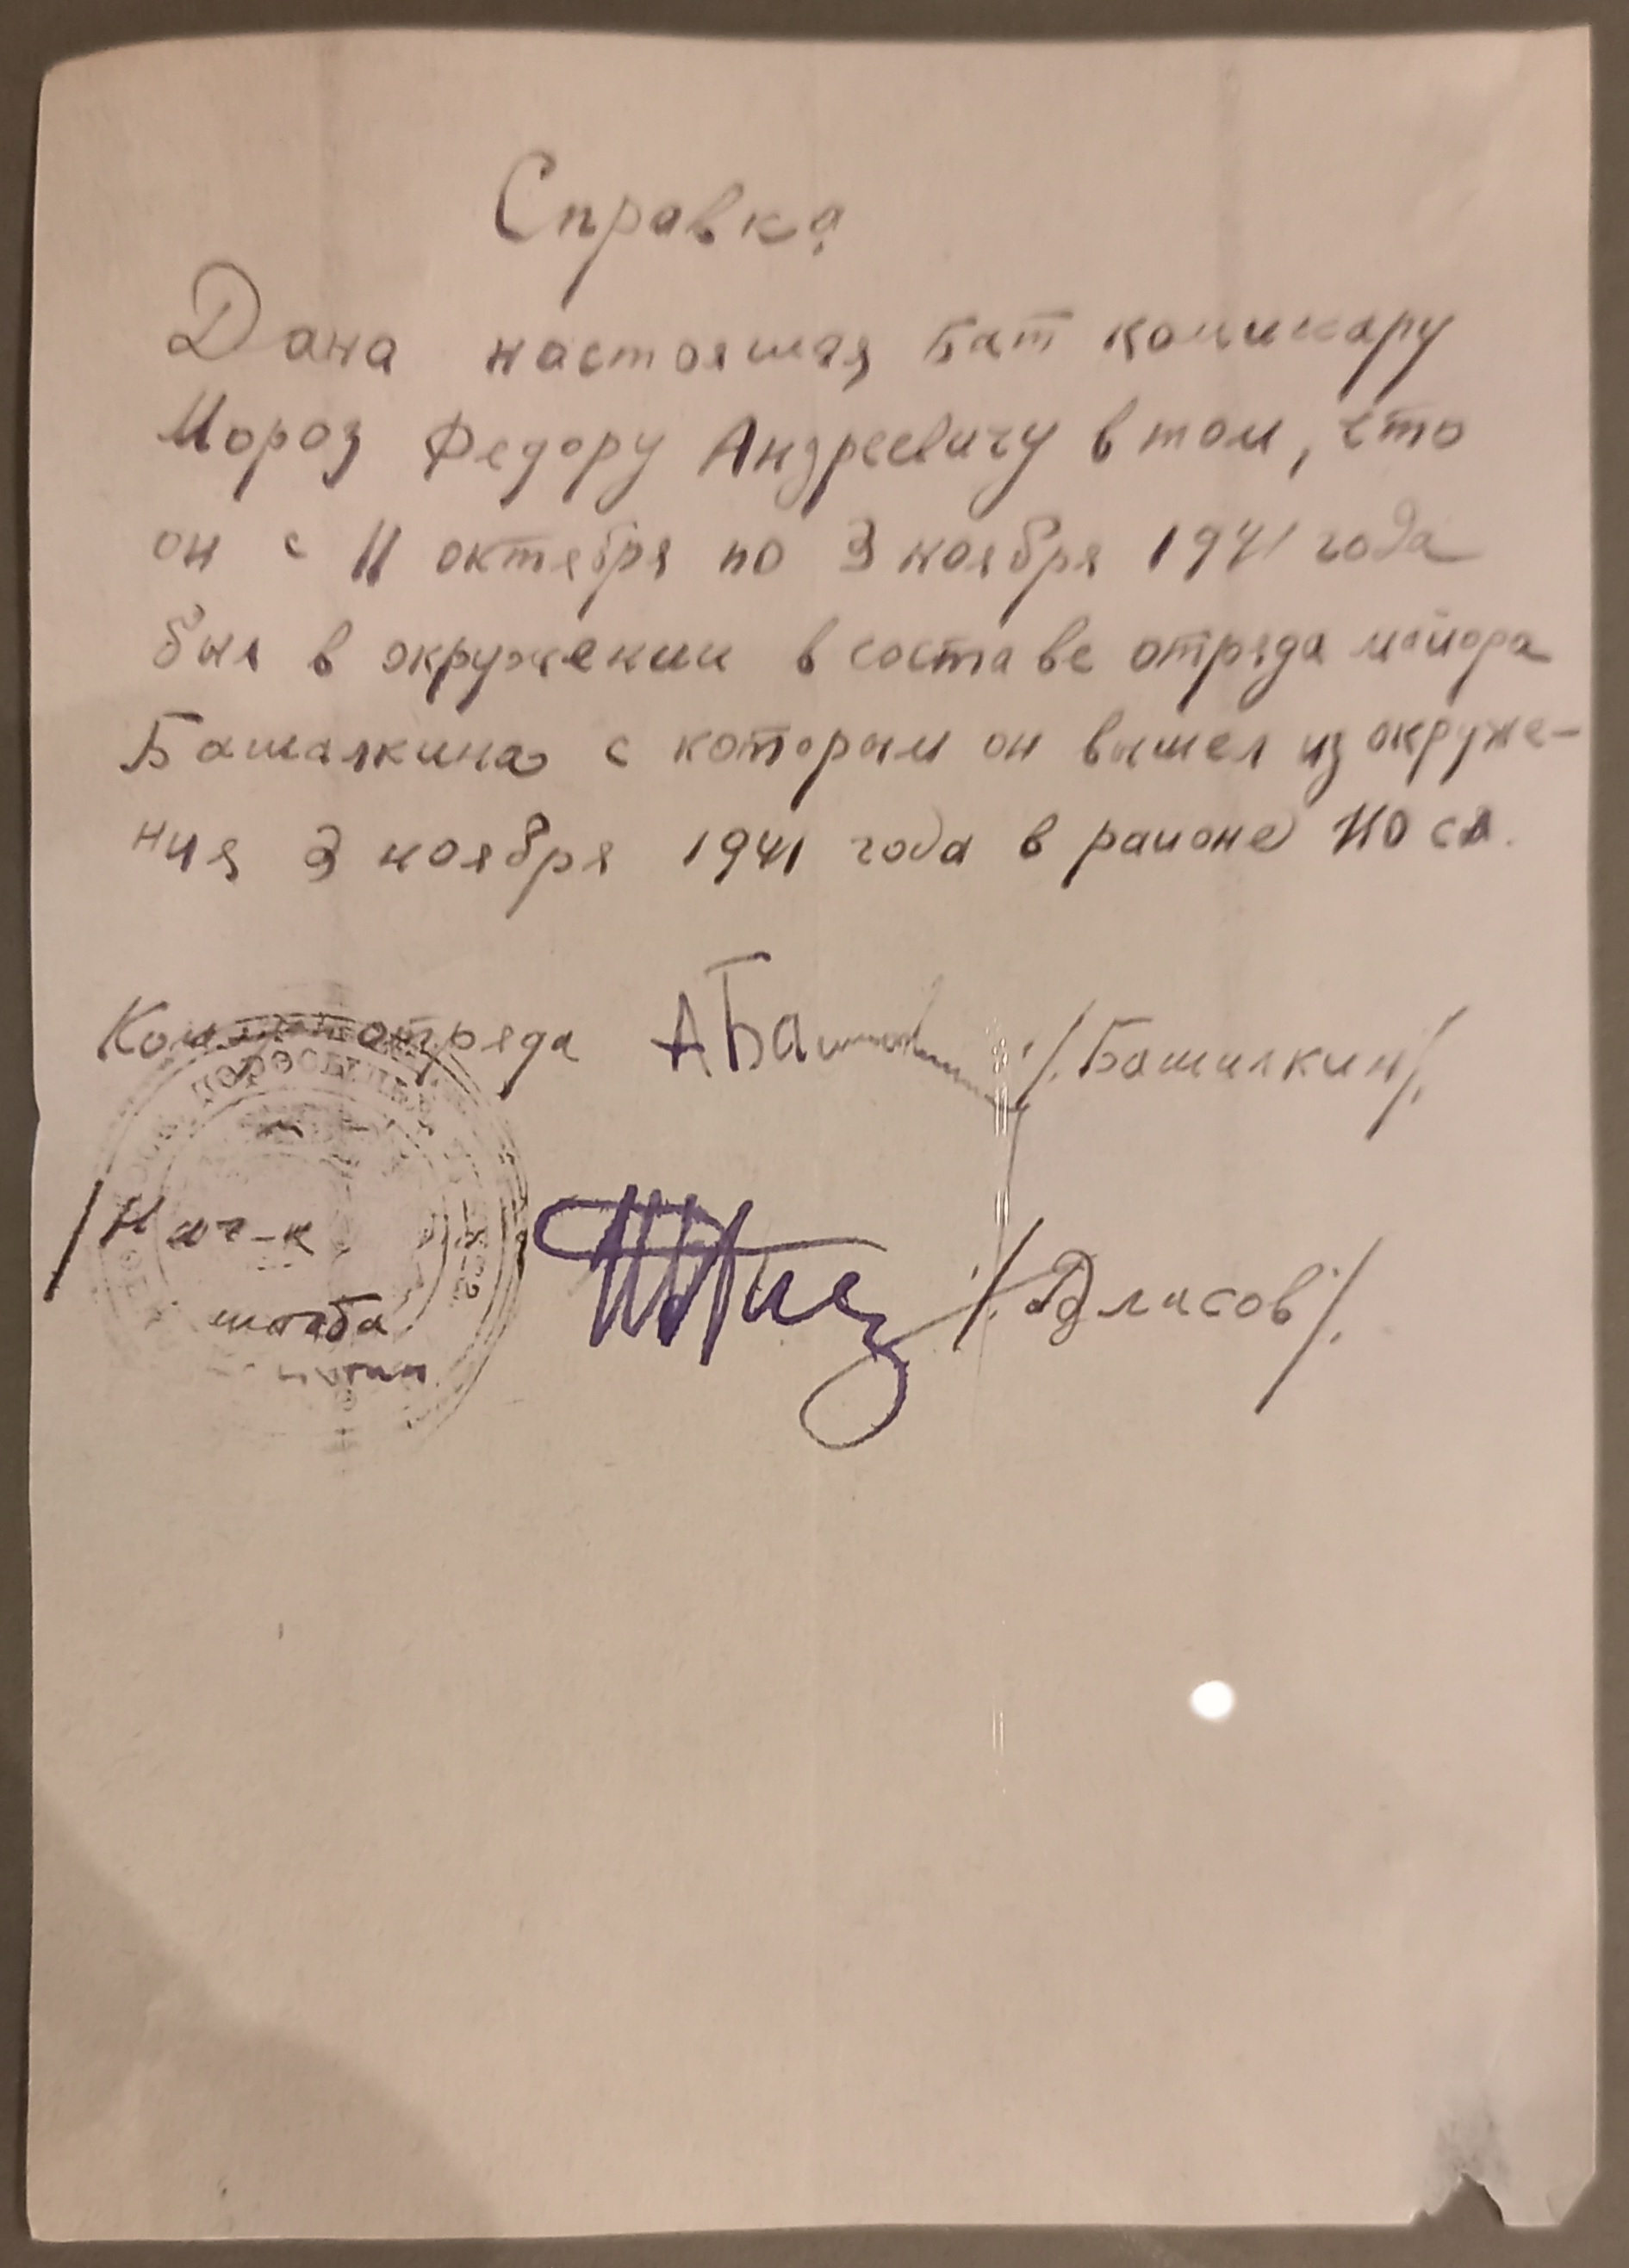 Справка
Дана настоящая Бат комиссару
Мороз Федору Андреевичу в том, что
он с 11 октября по 3 ноября 1941 года
был в окружении в составе отряда майора
Башалкина с которым он вышел из окруже-
ния 3 ноября 1941 года в районе 110 сд.
отряда АБаш /.Башилкин/.
/Нач-к
штаба /.Власов/.